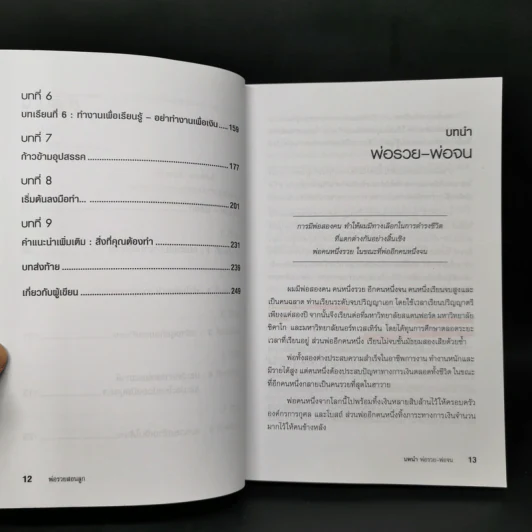 บทที่ 6
บทเรียนที่ 6 : ทำงานเพื่อเรียนรู้ – อย่าทำงานเพื่อเงิน.....159
บทที่ 7
ก้าวข้ามอุปสรรค.....177
บทที่ 8
เริ่มต้นลงมือทำ.....201
บทที่ 9
คำแนะนำเพิ่มเติม : สิ่งที่คุณต้องทำ.....231
บทส่งท้าย.....239
เกี่ยวกับผู้เขียน.....249
12 พ่อรวยสอนลูก
บทนำ
พ่อรวย–พ่อจน
การมีพ่อสองคน ทำให้ผมมีทางเลือกในการดำรงชีวิต
ที่แตกต่างกันอย่างสิ้นเชิง
พ่อคนหนึ่งรวย ในขณะที่พ่ออีกคนหนึ่งจน
ผมมีพ่อสองคน คนหนึ่งรวย อีกคนหนึ่งจน คนหนึ่งเรียนจบสูงและ
เป็นคนฉลาด ท่านเรียนระดับจบปริญญาเอก โดยใช้เวลาเรียนปริญญาตรี
เพียงแค่สองปี จากนั้นจึงเรียนต่อที่มหาวิทยาลัยสแตนฟอร์ด มหาวิทยาลัย
ชิคาโก และมหาวิทยาลัยนอร์ทเวสเทิร์น โดยได้ทุนการศึกษาตลอดระยะ
เวลาที่เรียนอยู่ ส่วนพ่ออีกคนหนึ่ง เรียนไม่จบชั้นมัธยมสองเสียด้วยซ้ำ
พ่อทั้งสองต่างประสบความสำเร็จในอาชีพการงาน ทำงานหนักและ
มีรายได้สูง แต่คนหนึ่งต้องประสบปัญหาทางการเงินตลอดทั้งชีวิต ในขณะ
ที่อีกคนหนึ่งกลายเป็นคนรวยที่สุดในฮาวาย
พ่อคนหนึ่งจากโลกนี้ไปพร้อมทิ้งเงินหลายสิบล้านไว้ให้ครอบครัว
องค์กรการกุศล และโบสถ์ ส่วนพ่ออีกคนหนึ่งทิ้งภาระทางการเงินจำนวน
มากไว้ให้คนข้างหลัง
บทนำ พ่อรวย–พ่อจน 13